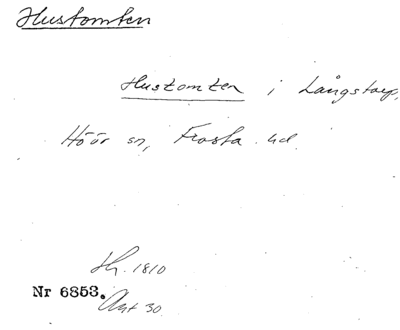 Hustomten
Hustomten i Långstorp,
Höör sn, Frosta hd.
Nr 6853. 1810
30